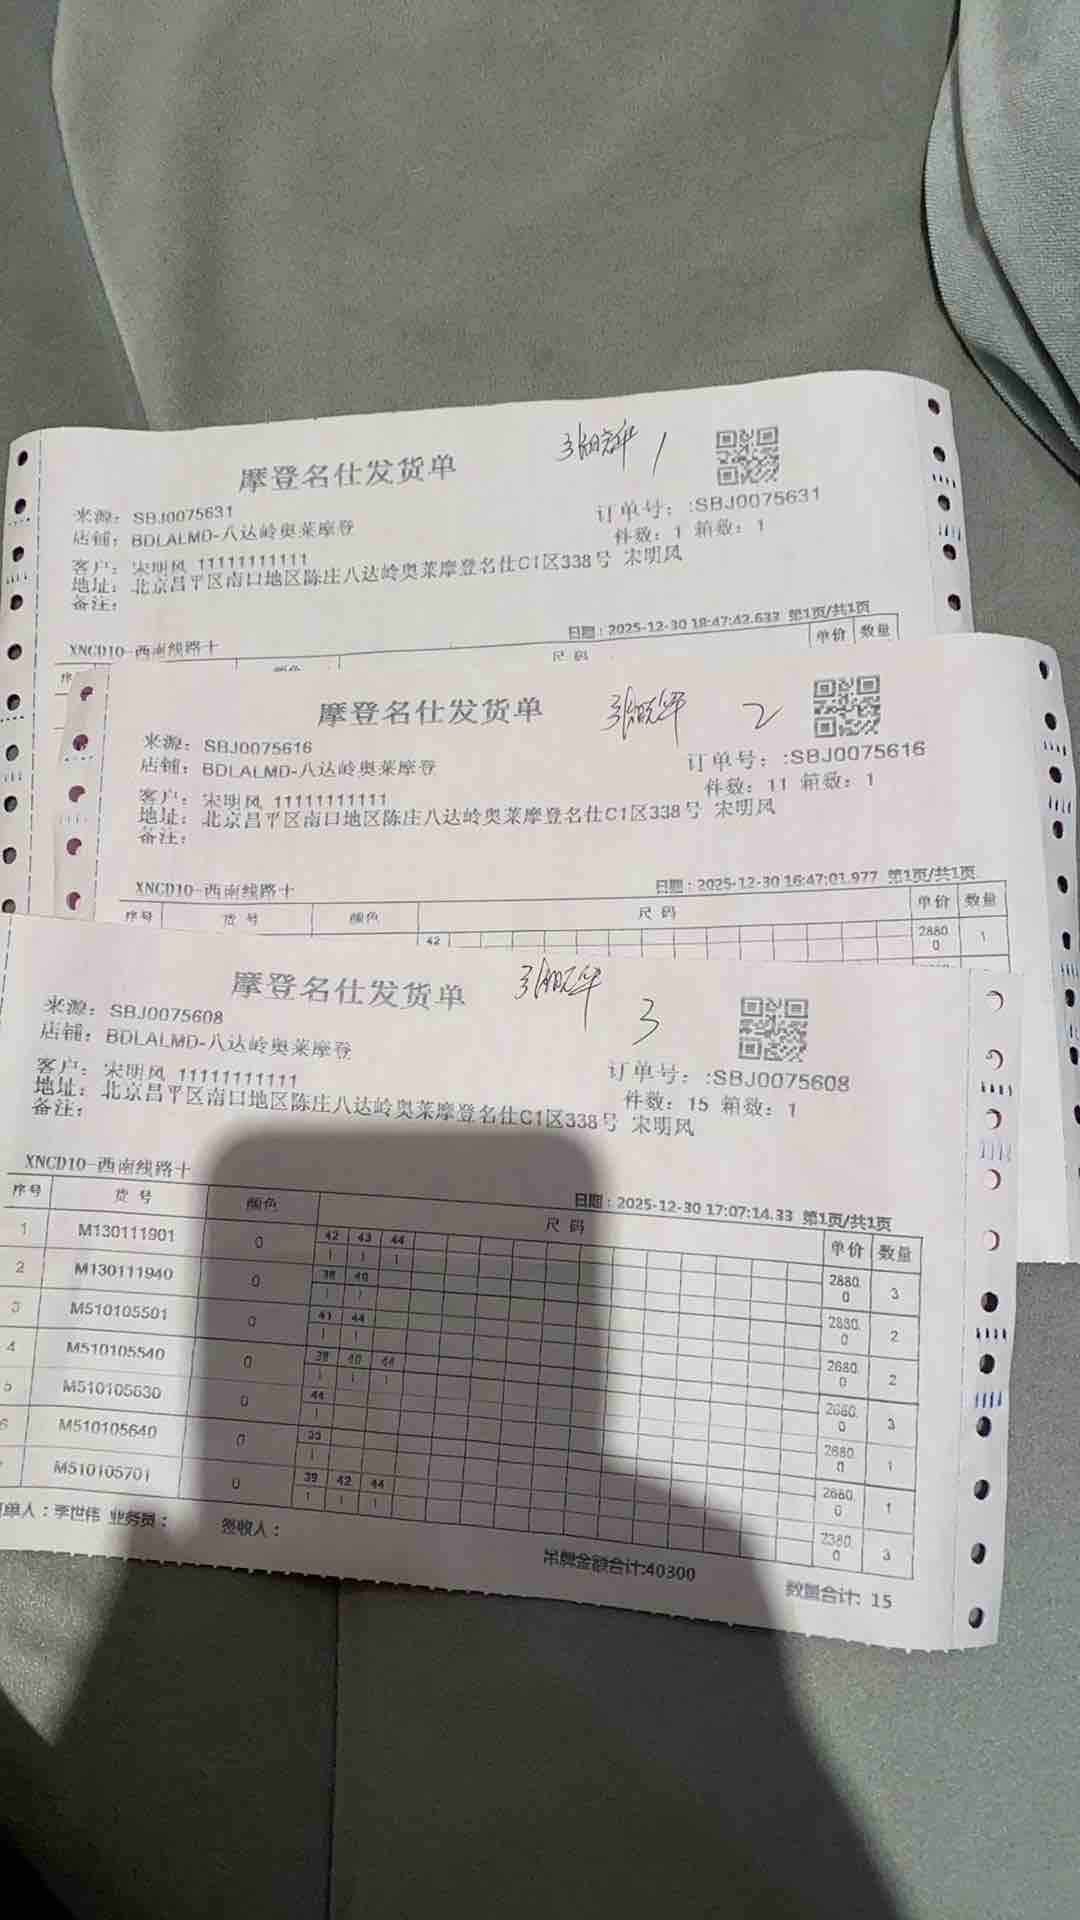 摩登名仕发货单
1
来源: SBJ0075631
订单号: :SBJ0075631
店铺: BDLALMD-八达岭奥莱摩登
件数: 1 箱数: 1
客户: 宋明风 11111111111
地址: 北京昌平区南口地区陈庄八达岭奥莱摩登名仕C1区338号 宋明风
备注:
XNCD10-西南线路十
日期: 2025-12-30 18:47:42.633 第1页/共1页
颜色 尺码 单价 数量
摩登名仕发货单
2
来源: SBJ0075616
订单号: :SBJ0075616
店铺: BDLALMD-八达岭奥莱摩登
件数: 11 箱数: 1
客户: 宋明风 11111111111
地址: 北京昌平区南口地区陈庄八达岭奥莱摩登名仕C1区338号 宋明风
备注:
XNCD10-西南线路十
日期: 2025-12-30 16:47:01.977 第1页/共1页
序号 货号 颜色 尺码 单价 数量
42 2880.0 1
摩登名仕发货单
3
来源: SBJ0075608
店铺: BDLALMD-八达岭奥莱摩登
订单号: :SBJ0075608
客户: 宋明风 11111111111
件数: 15 箱数: 1
地址: 北京昌平区南口地区陈庄八达岭奥莱摩登名仕C1区338号 宋明风
备注:
XNCD10-西南线路十
日期: 2025-12-30 17:07:14.33 第1页/共1页
序号 货号 颜色 尺码 单价 数量
42 43 44
1 M130111901 0 1 1 1 2880.0 3
38 40
2 M130111940 0 1 1 2880.0 2
41 44
3 M510105501 0 1 1 2680.0 2
39 40 44
4 M510105540 0 1 1 1 2680.0 3
44
5 M510105630 0 1 2680.0 1
6 M510105640 0 1 2680.0 1
39 42 44
M510105701 0 1 1 1 2380.0 3
单人: 李世伟 业务员: 签收人:
吊牌金额合计:40300
数量合计: 15